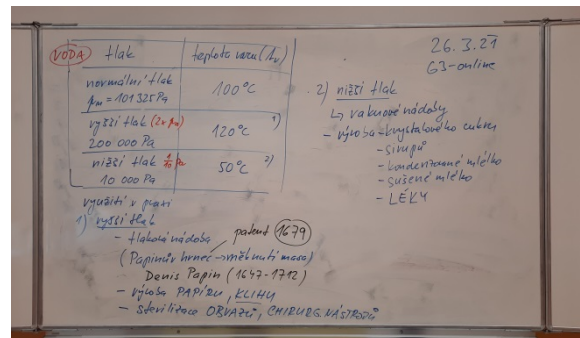 VODA
tlak
teplota varu (tv)
normální tlak
pn = 101325 Pa
100°C
vyšší tlak (2x pn)
200 000 Pa
120°C 1)
nižší tlak 1/10 pn
10 000 Pa
50°C 2)
využití v praxi
1) vyšší tlak
- tlaková nádoba
patent 1679
(Papinův hrnec → měknutí masa)
Denis Papin (1647-1712)
- výroba PAPÍRU, KLIHU
- sterilizace OBVAZŮ, CHIRURG. NÁSTROJŮ
26.3.21
G3-online
2) nižší tlak
↳ vakuové nádoby
- výroba - krystalového cukru
- sirupů
- kondenzované mléko
- sušené mléko
- LÉKY